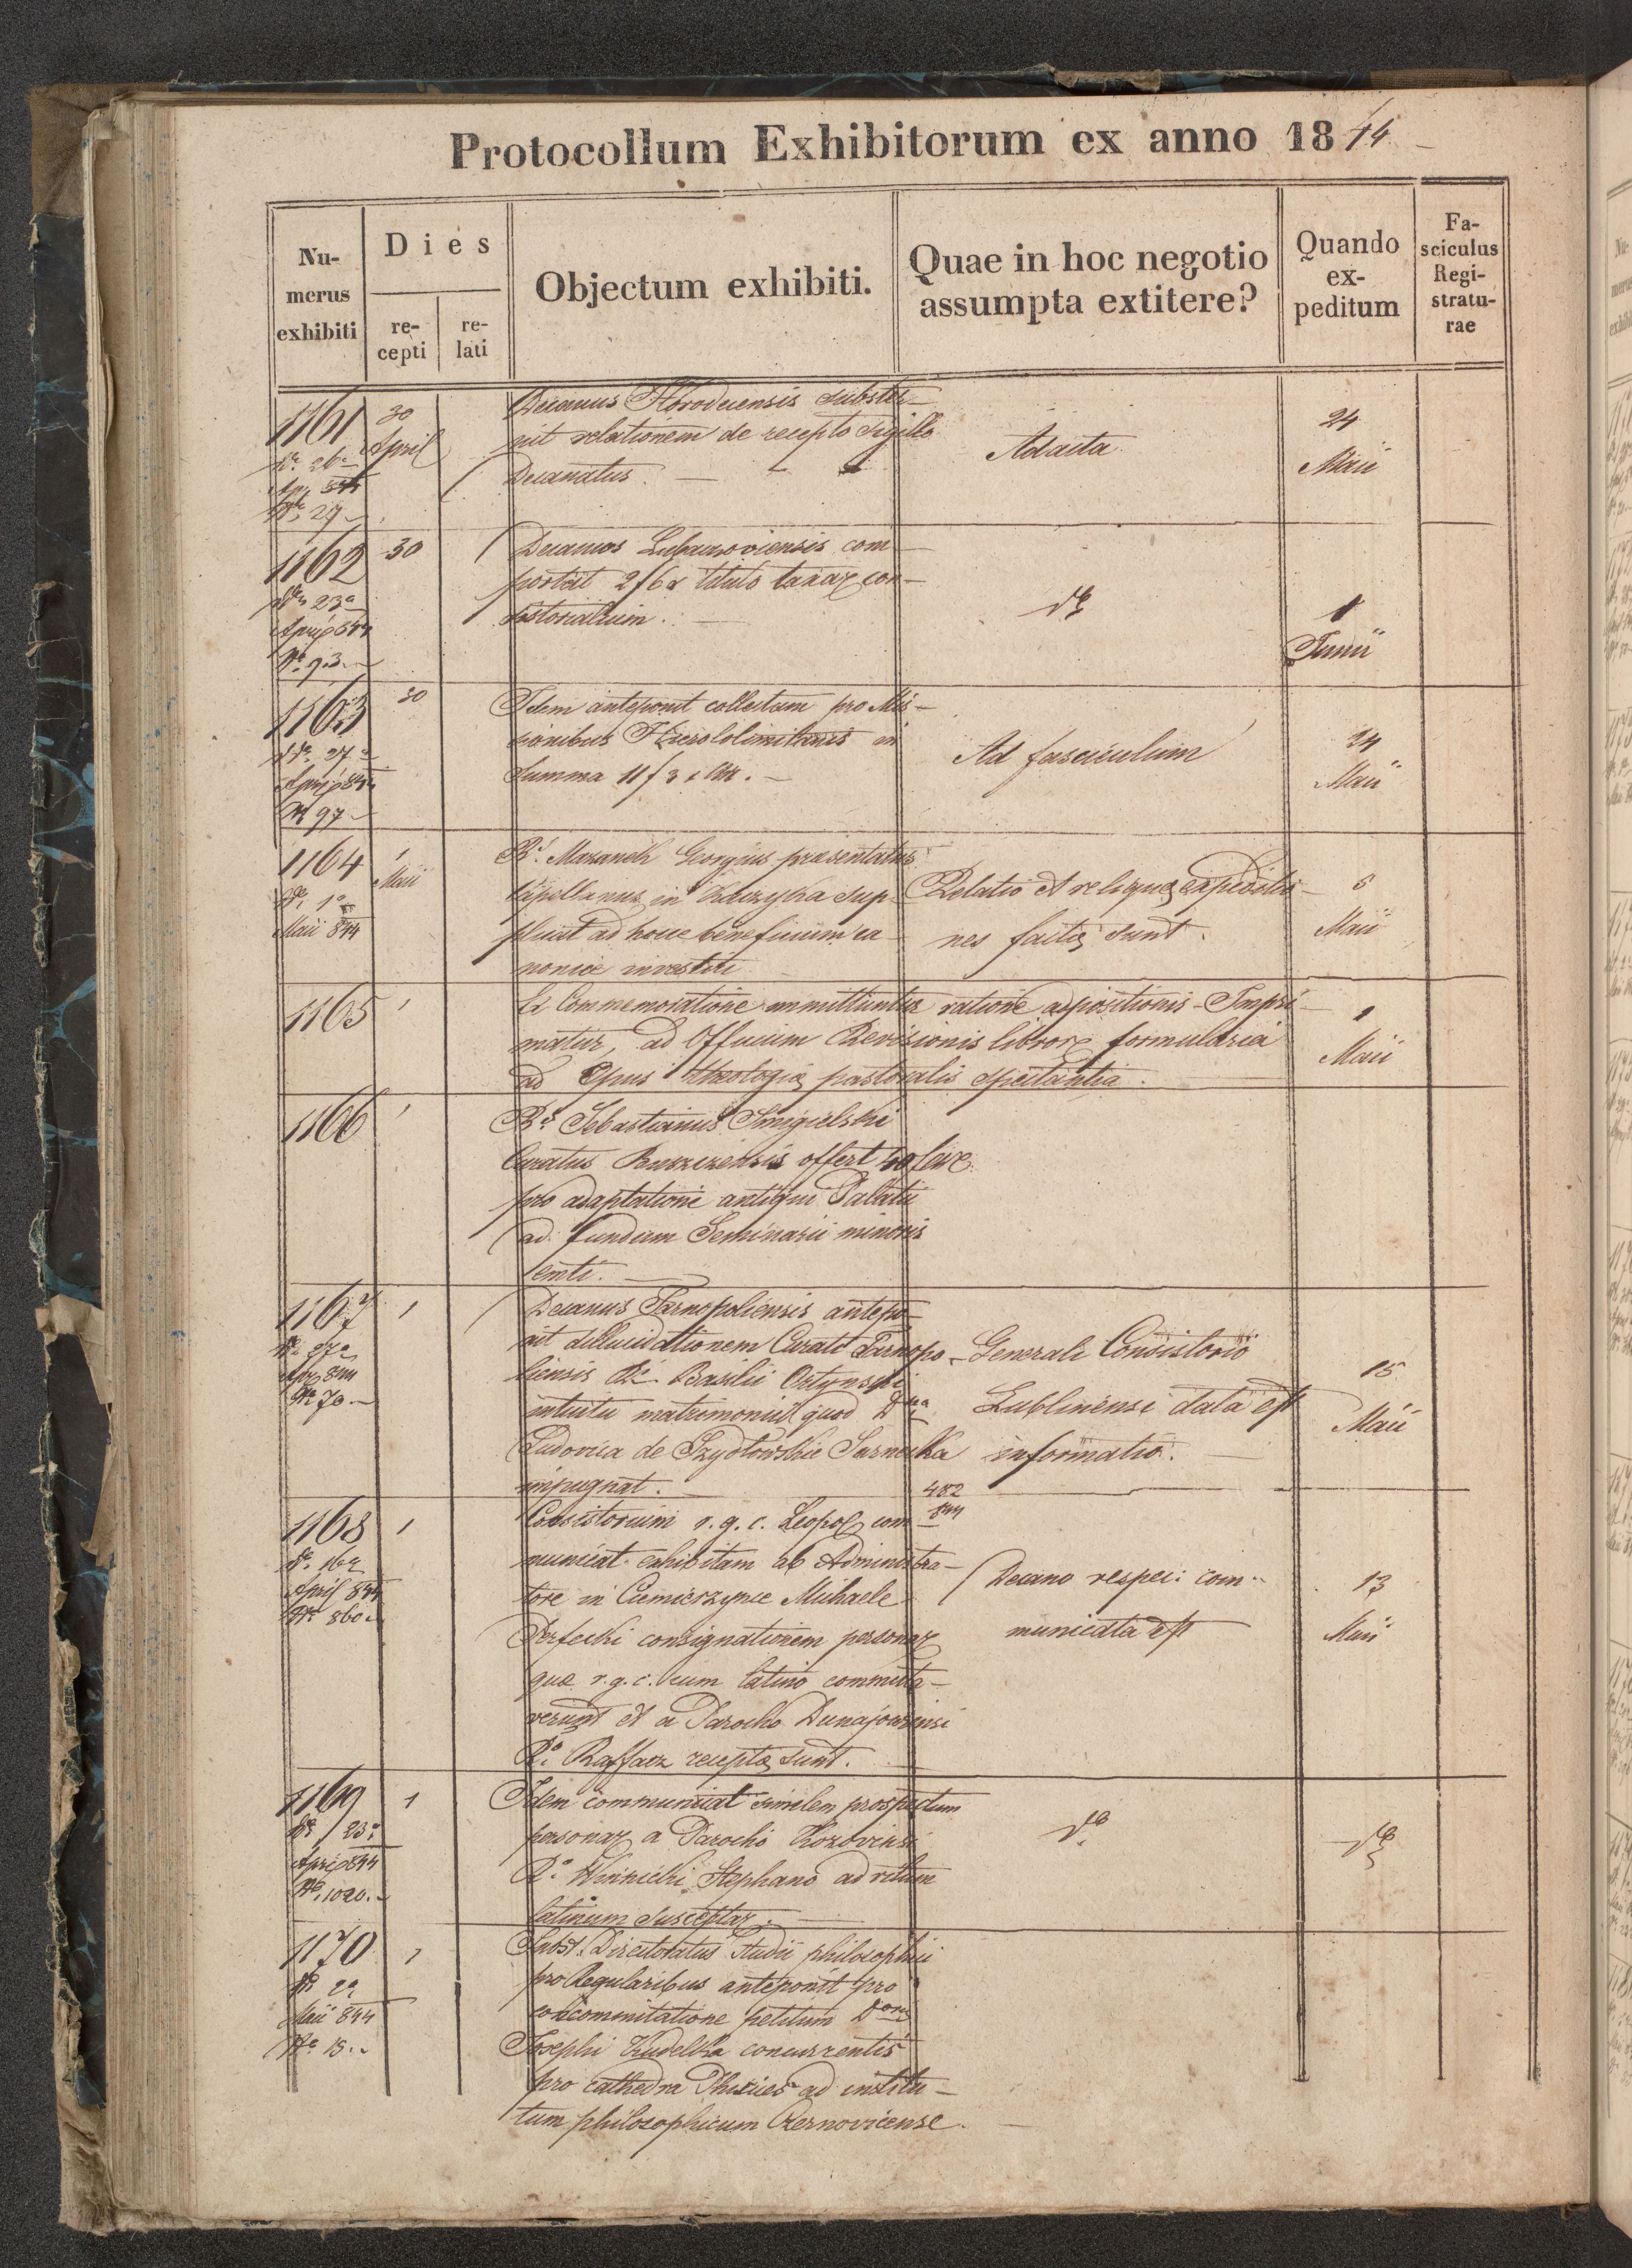 Protocollum Exhibitorum ex anno 1844
Nu-
merus
exhibiti
Dies
re-
cepti
re-
lati
Objectum exhibiti.
Quae in hoc negotio
assumpta extitere?
Quando
ex-
peditum
Fa-
sciculus
Regi-
stratu-
rae
1161
30
April
Decanus Horodecensis subster-
nit relationem de recepto sigillo
Decanatus.
Ad acta
24
Maii
1162
30
Decanus Lubaczoviensis com-
portat 2f 6x titulo taxar con-
sistorialium.
1
Junii
No 93
1163
30
Idem anteponit collectam pro Mis-
sionibus Hierosolimitanis in
Summa 11f 3x
Ad fasciculum
24
Maii
No 97
1164
1
Maii
Maii 844
Rs. Mazanek Georgius praesentatus
Capellanus in Kaczyka sup-
plicat ad hocce beneficium ca-
nonice investiri
Relatio et reliquae expeditio-
nes factae sunt.
6
Maii
1165
1
Ex Commemoratione immittuntur ratione appositionis Impri-
matur, ad Officium Revisionis libror formularia
ad Opus theologiae pastoralis spectantia.
1
Maii
1166
1
Rs. Sebastianus Smigielski
Curatus offert 40
pro adaptatione antiqui Palatii
ad fundum Seminarii minoris
emti.
1167
1
No 70
Decanus Tarnopoliensis antepo-
nit dillucidationem Curati Tarnopo-
liensis Basilii Ortynski
intuitu matrimonii quod
Ludovica de Szydłowskie Sarnecka
impugnat.
Generali Consistorio
Lublinensi data est
informatio.
15
Maii
1168
1
April 844
No 860
Consistorium r. g. c. Leopol com-
municat exhibitam ab Administra-
tore in Ciemierzynce Michaele
Perfecki consignationem personar
quae r. g. c. cum latino commuta-
verunt et a Parocho Dunajowensi
Ro. Raffacz receptae sunt.
482
844
Decano respec: com-
municata est
13
Maii
1169
1
23
April 844
No. 1020.
Idem communicat similem prospectum
personar a Parocho Kozoviensi
Ro. Winnicki Stephano ad ritum
latinum susceptar.
1170
1
Maii 844
No. 15.
Subst. Directoratus Studii philosophici
pro Regularibus anteponit pro
concommitatione petitum
Josephi Kudelka concurrentis
pro cathedra Phisices ad institu-
tum philosophicum Czernovicense.